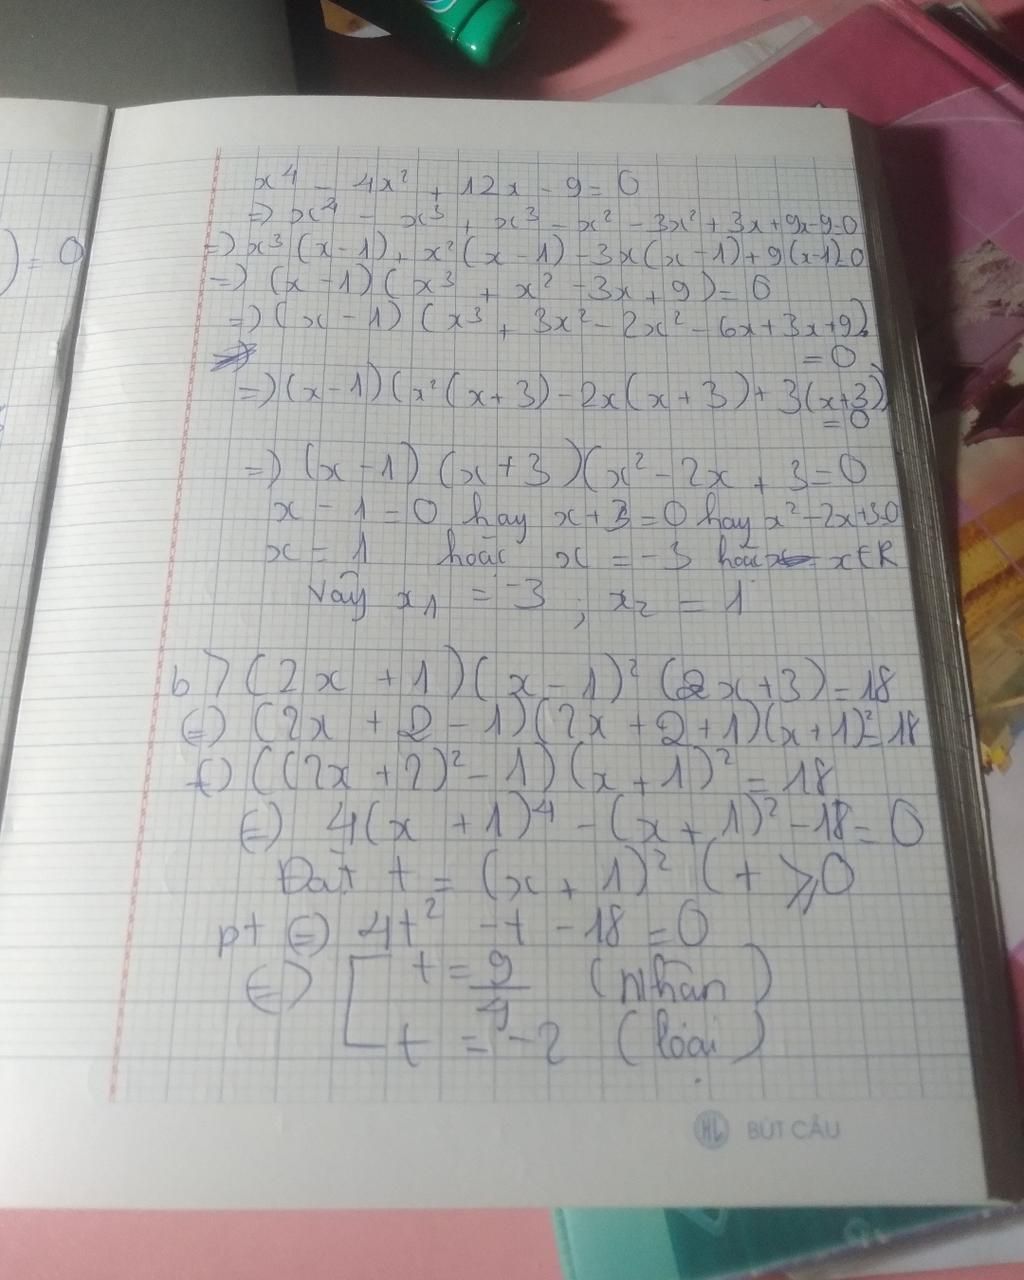 ) = 0
x⁴ - 4x² + 12x - 9 = 0
=) x⁴ - x³ + x³ - x² - 3x² + 3x + 9x - 9 = 0
=) x³ (x - 1) + x² (x - 1) - 3x (x - 1) + 9 (x - 1) = 0
=) (x - 1) ( x³ + x² - 3x + 9 ) = 0
=) (x - 1) (x³ + 3x² - 2x² - 6x + 3x + 9)
= 0
=) (x - 1) (x² (x + 3) - 2x (x + 3) + 3 (x + 3)
= 0
=) (x - 1) (x + 3) (x² - 2x + 3 = 0
x - 1 = 0 hay x + 3 = 0 hay x² - 2x + 3 = 0
x = 1 hoặc x = -3 hoặc x ∈ R
Vậy x₁ = -3 ; x₂ = 1
b ) (2x + 1) (x - 1)² (2x + 3) = 18
(=) (2x + 2 - 1) (2x + 2 + 1) (x + 1)² = 18
(=) ((2x + 2)² - 1) (x + 1)² = 18
(=) 4 (x + 1)⁴ - (x + 1)² - 18 = 0
Đặt t = (x + 1)² ( t ⩾ 0
pt (=) 4t² - t - 18 = 0
(=) [ t = 9/4 (Nhận)
t = -2 (loại)
HL BÚT CẦU